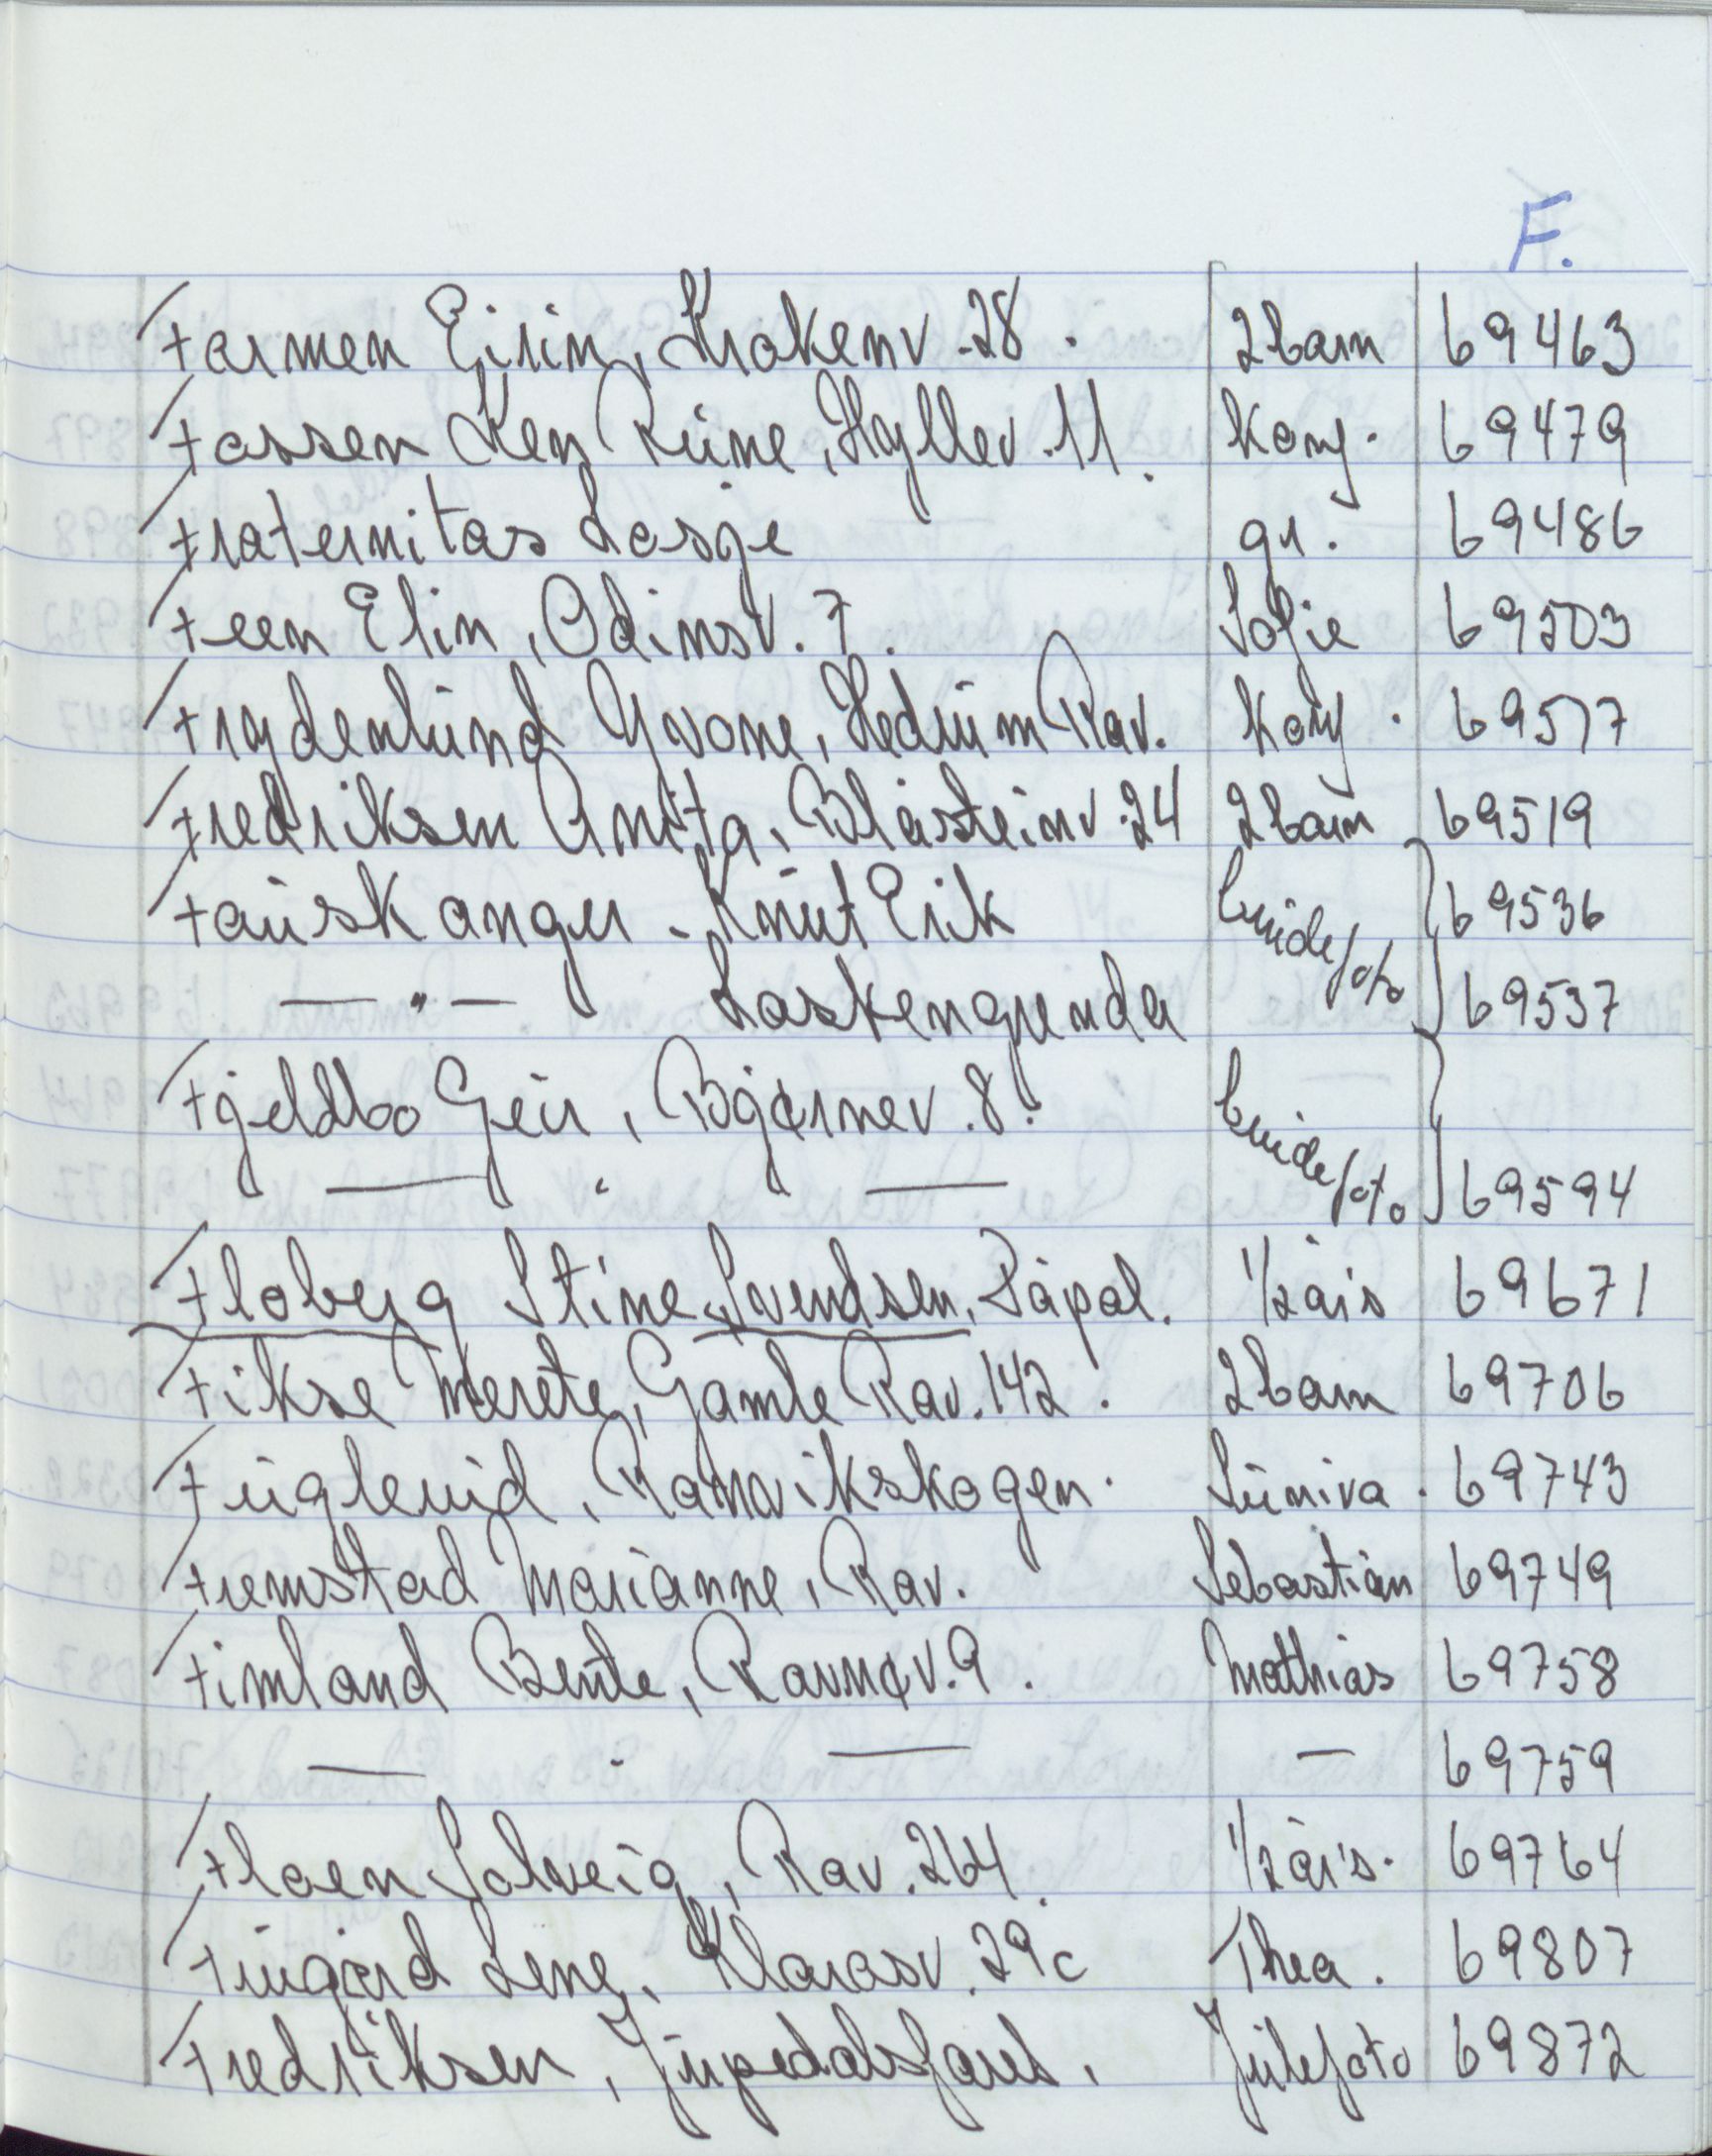 F.
Farmen Eirin, Krokenv. 28. 2 barn 69463
Fassen Ken Rune, Hyllev. 11. Konf. 69479
Fraternitas Losje gr. 69486
Feen Elin, Odinsv. 7. Sofie 69503
Frydenlund Yvone, Hedrum Rav. Konf. 69517
Fredriksen Anita, Blåsteinv. 24 2 barn 69519
Fauskanger - Knut Erik brude/oto 69536
— " — Loskengrenda 69537
Fjeldbo Geir, Bjørnev. 8. brude/oto
— " — 69594
Floberg Stine Svendsen, Påpal. 1/2 års 69671
Fikse Merete, Gamle Rav. 142. 2 barn 69706
Fuglerud, Ranvikskogen. Sunniva. 69743
Fremstad Marianne, Rav. Sebastian 69749
Fimland Bente, Ravnøv. 9. Mathias 69758
— " — — 69759
Floen Solveig, Rav. 264. 1/2 års. 69764
Furgård Lene, Klarasv. 29c Thea. 69807
Fredriksen, Jupedalsfaret. Julefoto 69872